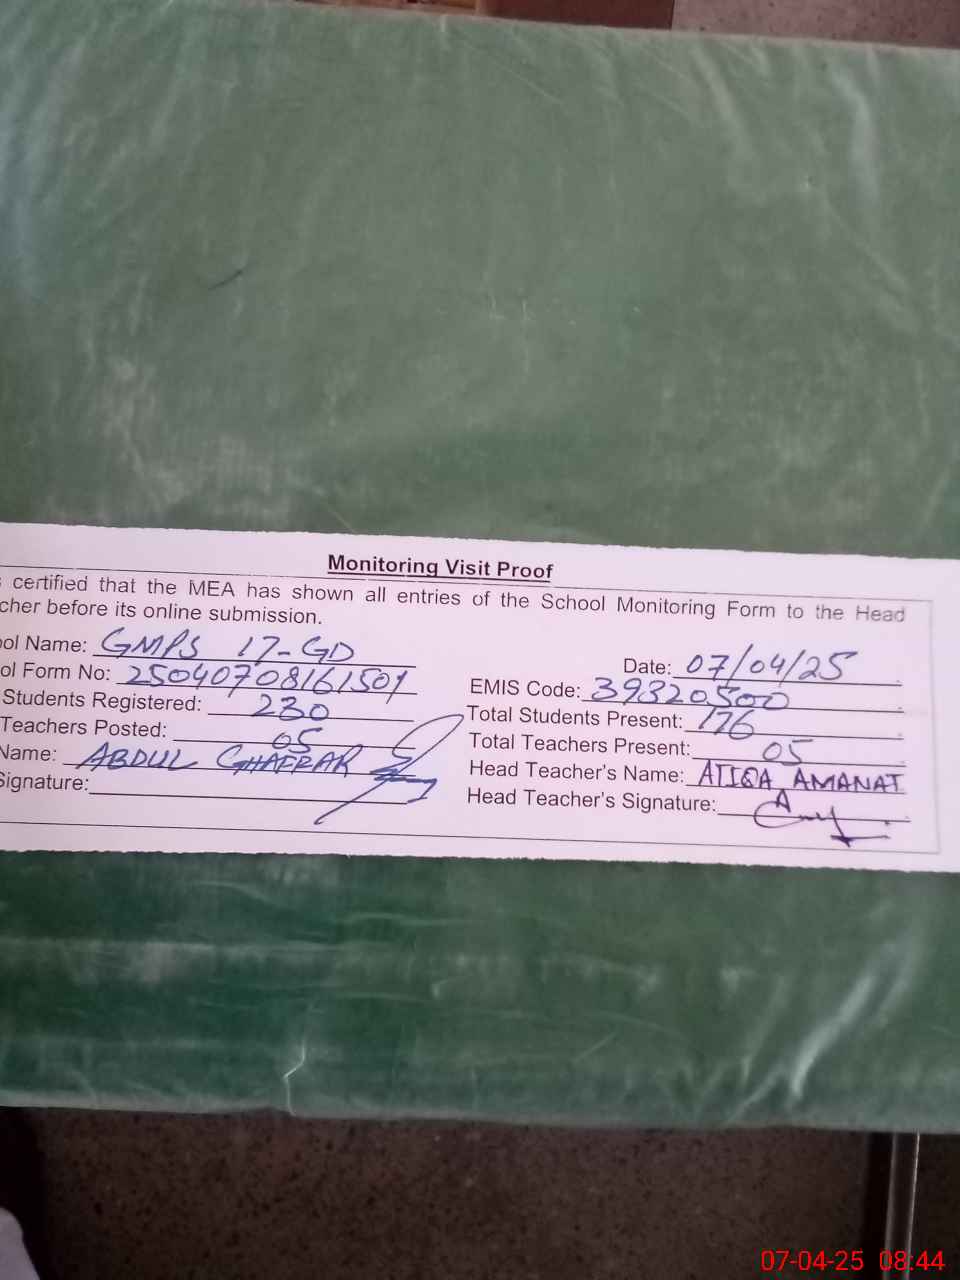 Monitoring Visit Proof
certified that the MEA has shown all entries of the School Monitoring Form to the Head
cher before its online submission.
ool Name: GMPS 17-GD
Date: 07/04/25
ol Form No: 25040708161501
EMIS Code: 39320500
Students Registered: 230
Total Students Present: 176
Teachers Posted: 05
Total Teachers Present: 05
Name: ABDUL GHAFFAR
Head Teacher's Name: ATIQA AMANAT
Signature:
Head Teacher's Signature:
07-04-25 08:44